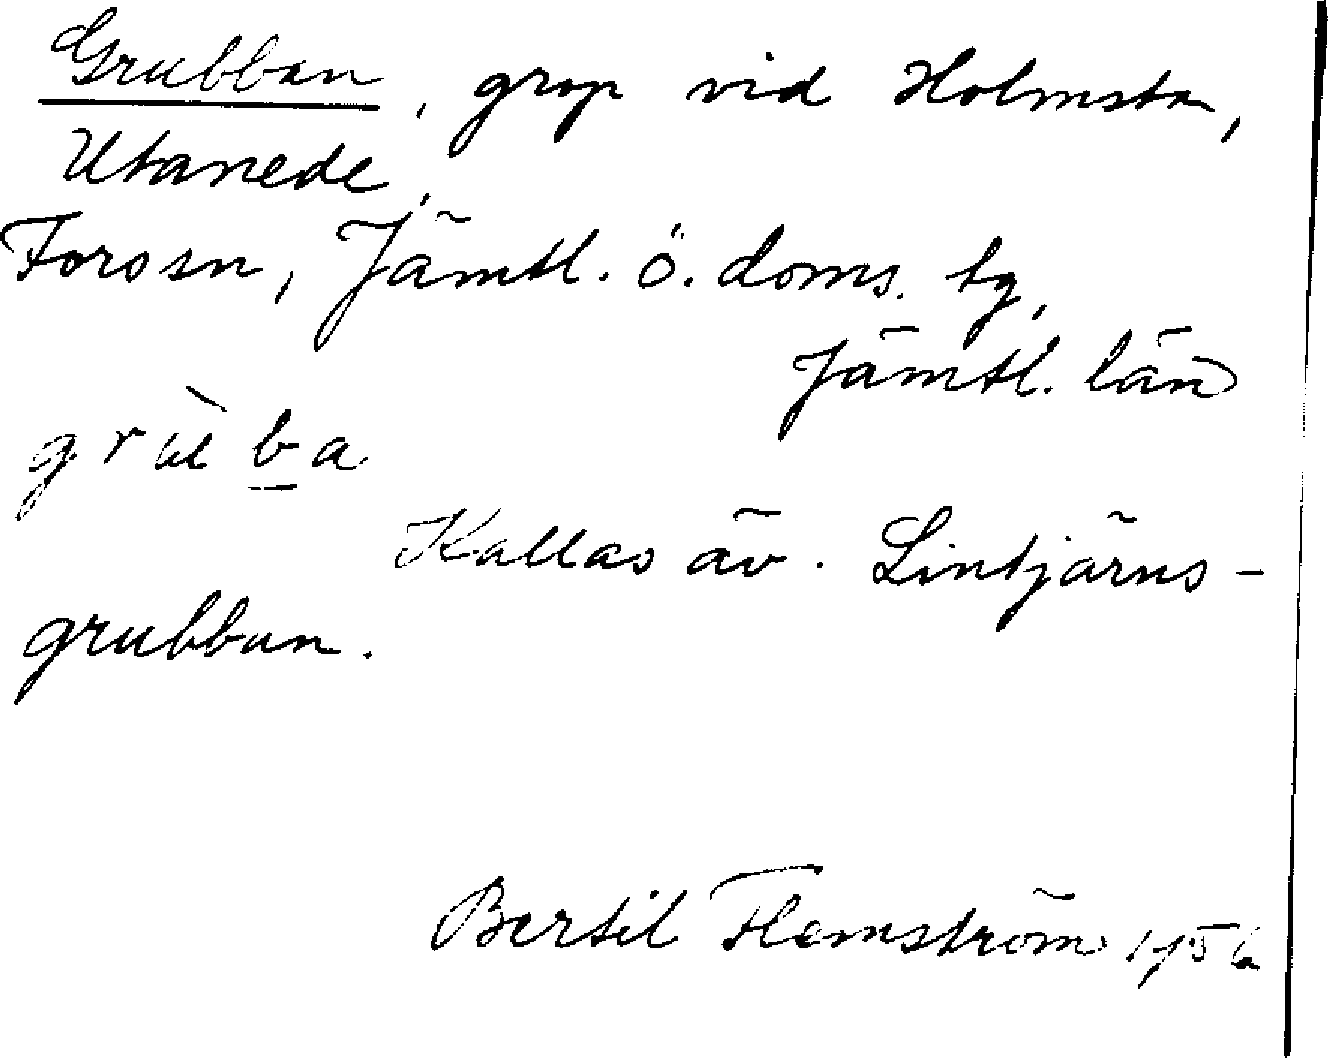 Grubban, grop vid Holmsta,
Utanede,
Forssn, Jämtl. ö. doms. tg,
Jämtl. län
grùba
Kallas äv. Lintjärns-
grubban.
Bertil Flemström 1956